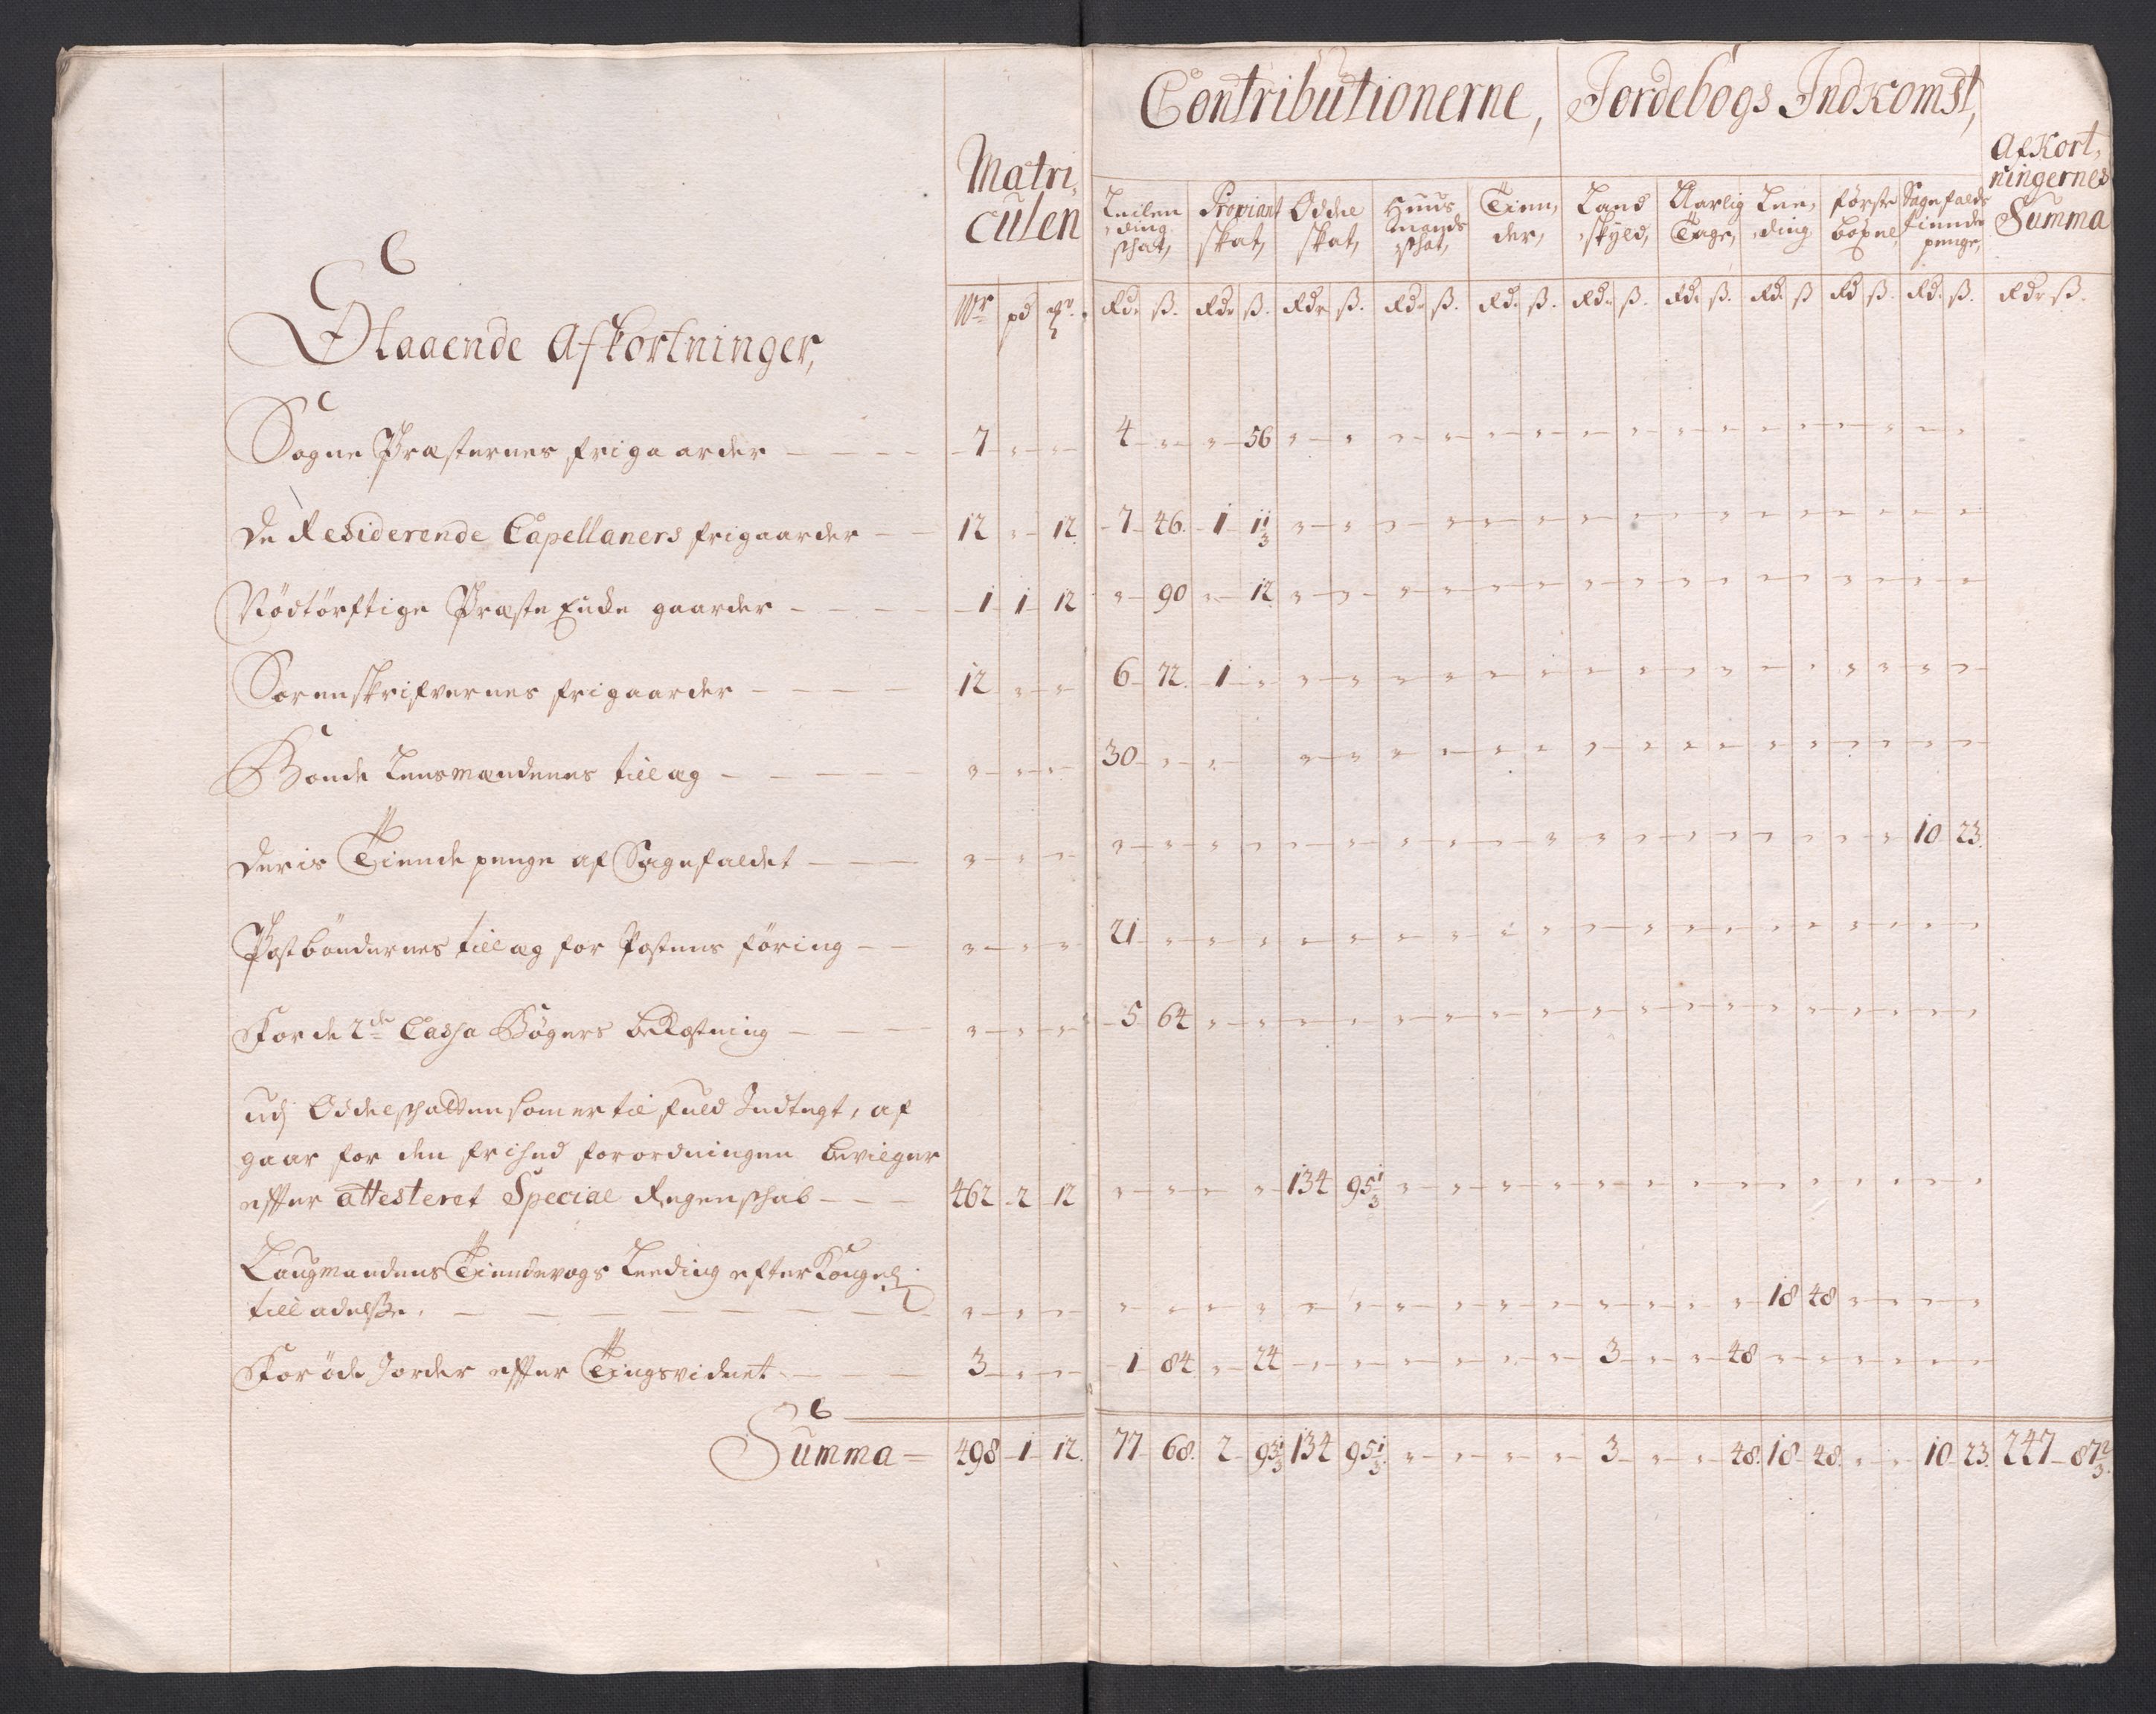 Contributionerne, Jordebogs Indkomst,
Matri,
culen
Afkort,
ningernes
Summa
Leilen
ding
schat,
Proviant
skat,
Oddel
skat,
Huus
mands
schat,
Tien,
der,
Land
skyld,
Aarlig
Tage,
Lee,
ding
første
böxel,
Sagefalds
tiende
penge,
Wr pd
Rd. ß. Rdr ß. Rdr ß. Rdr ß. Rd. ß. Rdr ß. Rd. ß. Rd. ß Rd ß. Rd. ß. Rdr ß.
Staaende Afkortninger,
Sogne Præsternes frigaarder — 7 " " 4 " " 56
De Residerende Capellaners frigaarder — 12 " 12 7 46. 1 1 1/3
Nödtörftige Præste Encke gaarder — 1 1 12 " 90 " 12
Sorenskrifvernes frigaarder — 12 " " 6 72. 1 "
Bonde Lensmændenes tillæg — " " " 30 " "
Deris Tiende penge af Sagefaldet — " " " 10 23.
Postböndernes tillæg for Postens föring — " " " 21 "
For de 2de Cassa Bögers bekostning — " " " 5 64
udj Oddelschatten som er til fuld Indtegt, af
gaar for den frihed forordningen bevilger
effter attesteret Special Regenschab — 462 2 12 " " " " 134 95 1/3
Laugmandens Tiendevogs Leeding efter Kongel:
till adelsse. — " " " 18 48
For öde Jorder effter Tingsvidnet — 3 " " 1 84 " 24 3 " " 48
Summa = 498 1 12. 77 68. 2 93 1/3 134 95 1/3. 3 " " 48. 18 48. " " 10 23. 247 87 2/3.